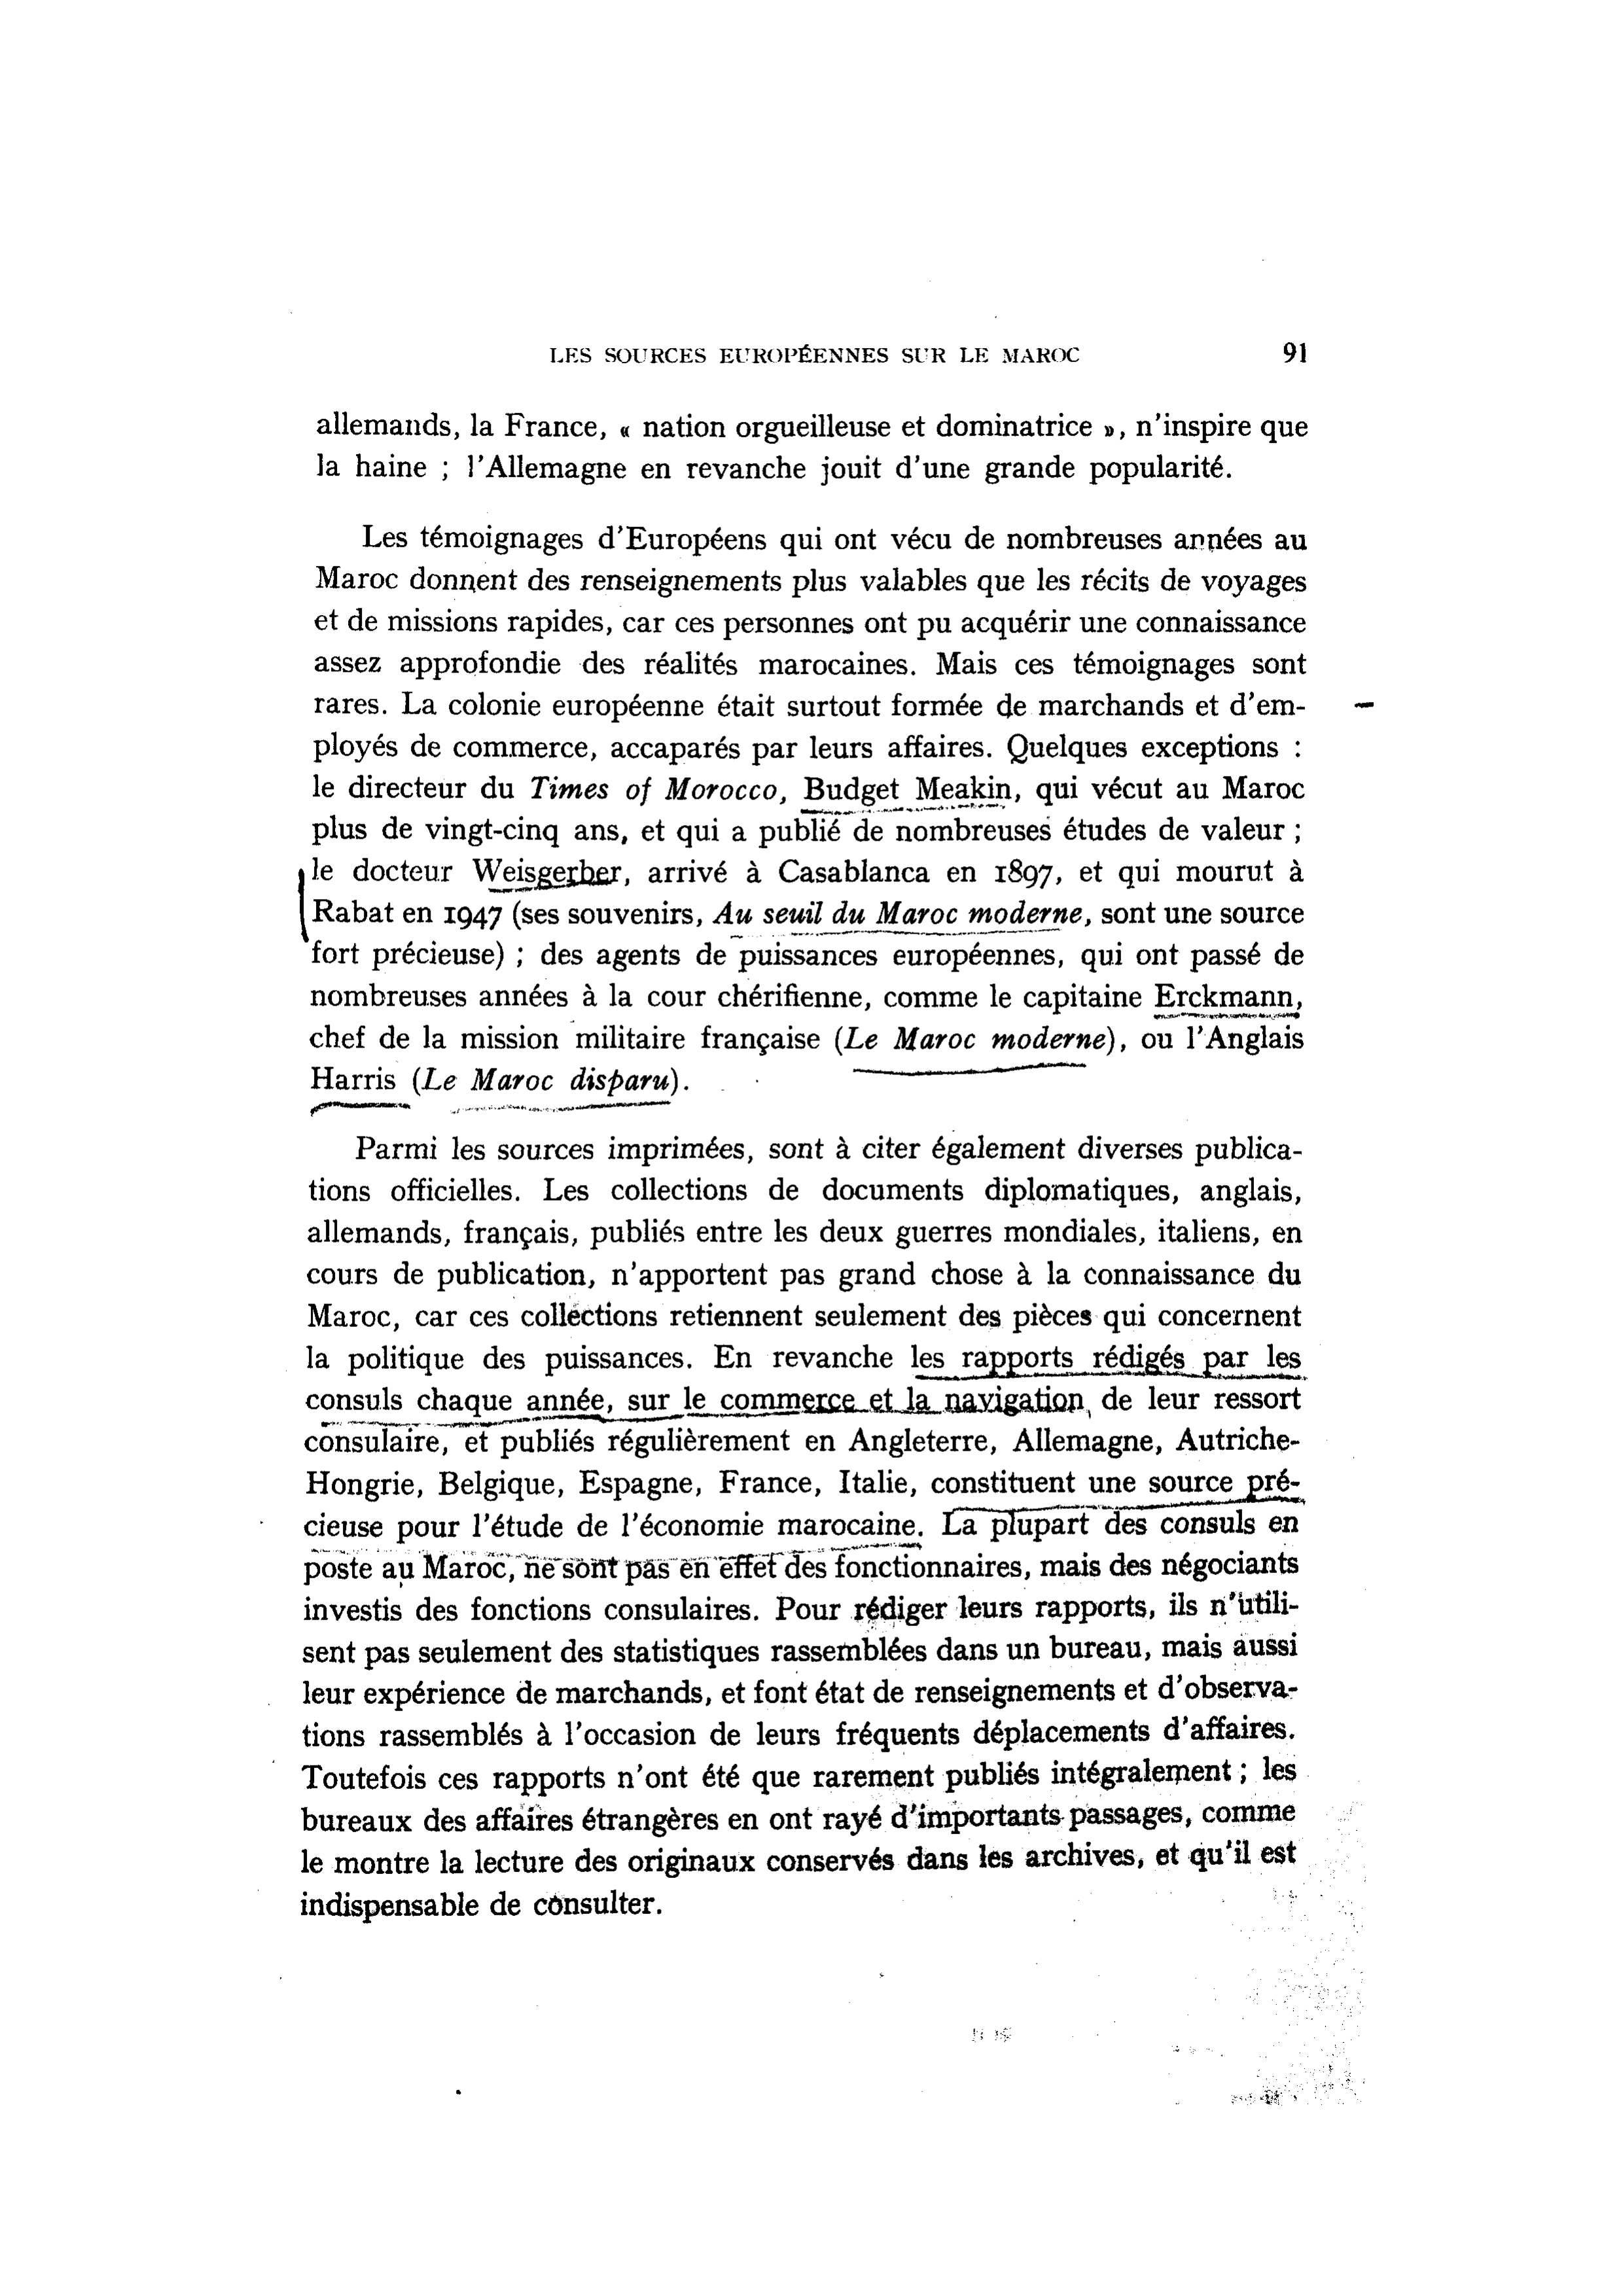 LES SOURCES EUROPÉENNES SUR LE MAROC 91
allemands, la France, « nation orgueilleuse et dominatrice », n'inspire que
la haine ; l'Allemagne en revanche jouit d'une grande popularité.
Les témoignages d'Européens qui ont vécu de nombreuses années au
Maroc donnent des renseignements plus valables que les récits de voyages
et de missions rapides, car ces personnes ont pu acquérir une connaissance
assez approfondie des réalités marocaines. Mais ces témoignages sont
rares. La colonie européenne était surtout formée de marchands et d'em-
ployés de commerce, accaparés par leurs affaires. Quelques exceptions :
le directeur du Times of Morocco, Budget Meakin, qui vécut au Maroc
plus de vingt-cinq ans, et qui a publié de nombreuses études de valeur ;
le docteur Weisgerber, arrivé à Casablanca en 1897, et qui mourut à
Rabat en 1947 (ses souvenirs, Au seuil du Maroc moderne, sont une source
fort précieuse) ; des agents de puissances européennes, qui ont passé de
nombreuses années à la cour chérifienne, comme le capitaine Erckmann,
chef de la mission militaire française (Le Maroc moderne), ou l'Anglais
Harris (Le Maroc disparu).
Parmi les sources imprimées, sont à citer également diverses publica-
tions officielles. Les collections de documents diplomatiques, anglais,
allemands, français, publiés entre les deux guerres mondiales, italiens, en
cours de publication, n'apportent pas grand chose à la connaissance du
Maroc, car ces collections retiennent seulement des pièces qui concernent
la politique des puissances. En revanche les rapports rédigés par les
consuls chaque année, sur le commerce et la navigation de leur ressort
consulaire, et publiés régulièrement en Angleterre, Allemagne, Autriche-
Hongrie, Belgique, Espagne, France, Italie, constituent une source pré-
cieuse pour l'étude de l'économie marocaine. La plupart des consuls en
poste au Maroc, ne sont pas en effet des fonctionnaires, mais des négociants
investis des fonctions consulaires. Pour rédiger leurs rapports, ils n'utili-
sent pas seulement des statistiques rassemblées dans un bureau, mais aussi
leur expérience de marchands, et font état de renseignements et d'observa-
tions rassemblés à l'occasion de leurs fréquents déplacements d'affaires.
Toutefois ces rapports n'ont été que rarement publiés intégralement ; les
bureaux des affaires étrangères en ont rayé d'importants passages, comme
le montre la lecture des originaux conservés dans les archives, et qu'il est
indispensable de consulter.